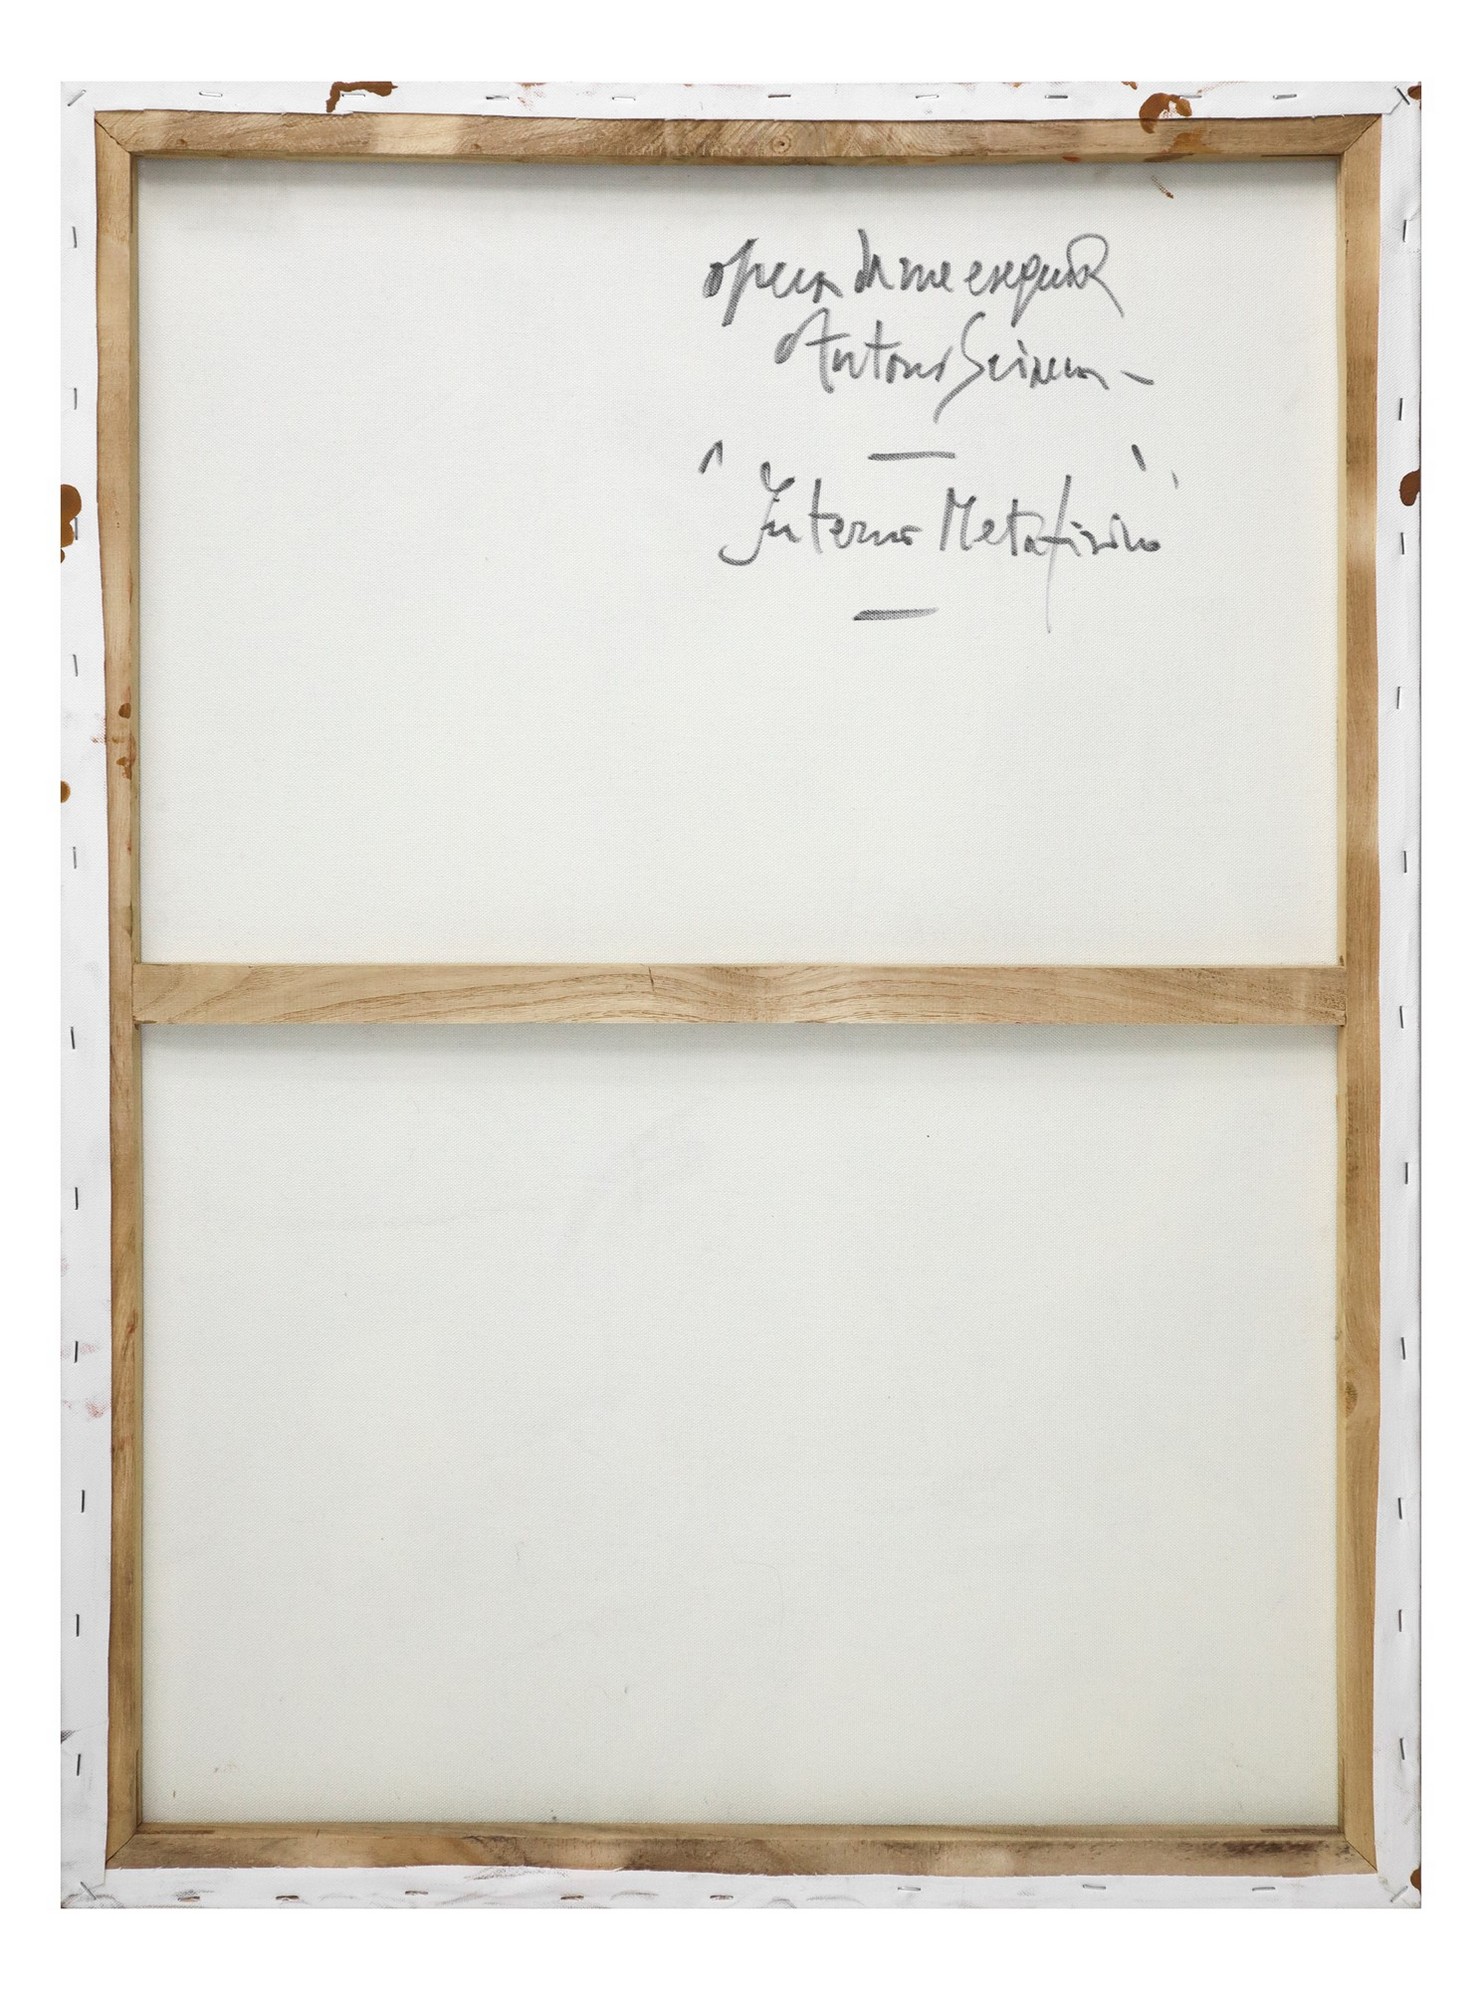 opera da me eseguita
Antonio Sciacca -
"Interno Metafisico"